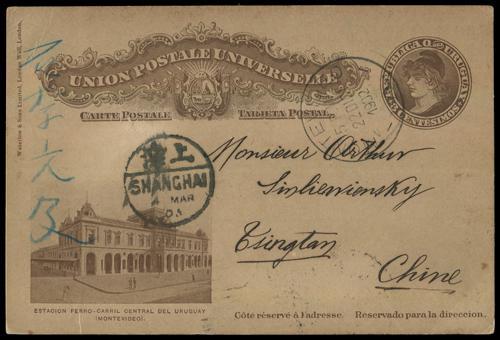 Waterlow & Sons Limited, London Wall, London.
UNION POSTALE UNIVERSELLE
REPUBLICA O. DEL URUGUAY
3 CENTESIMOS
CARTE POSTALE
TARJETA POSTAL
1902
海上
SHANGHAI
4 MAR
Monsieur Arthur
Sinliewiensky
Tsingtau
Chine
ESTACION FERRO-CARRIL CENTRAL DEL URUGUAY
(MONTEVIDEO).
Côté réservé à l'adresse. Reservado para la direccion.